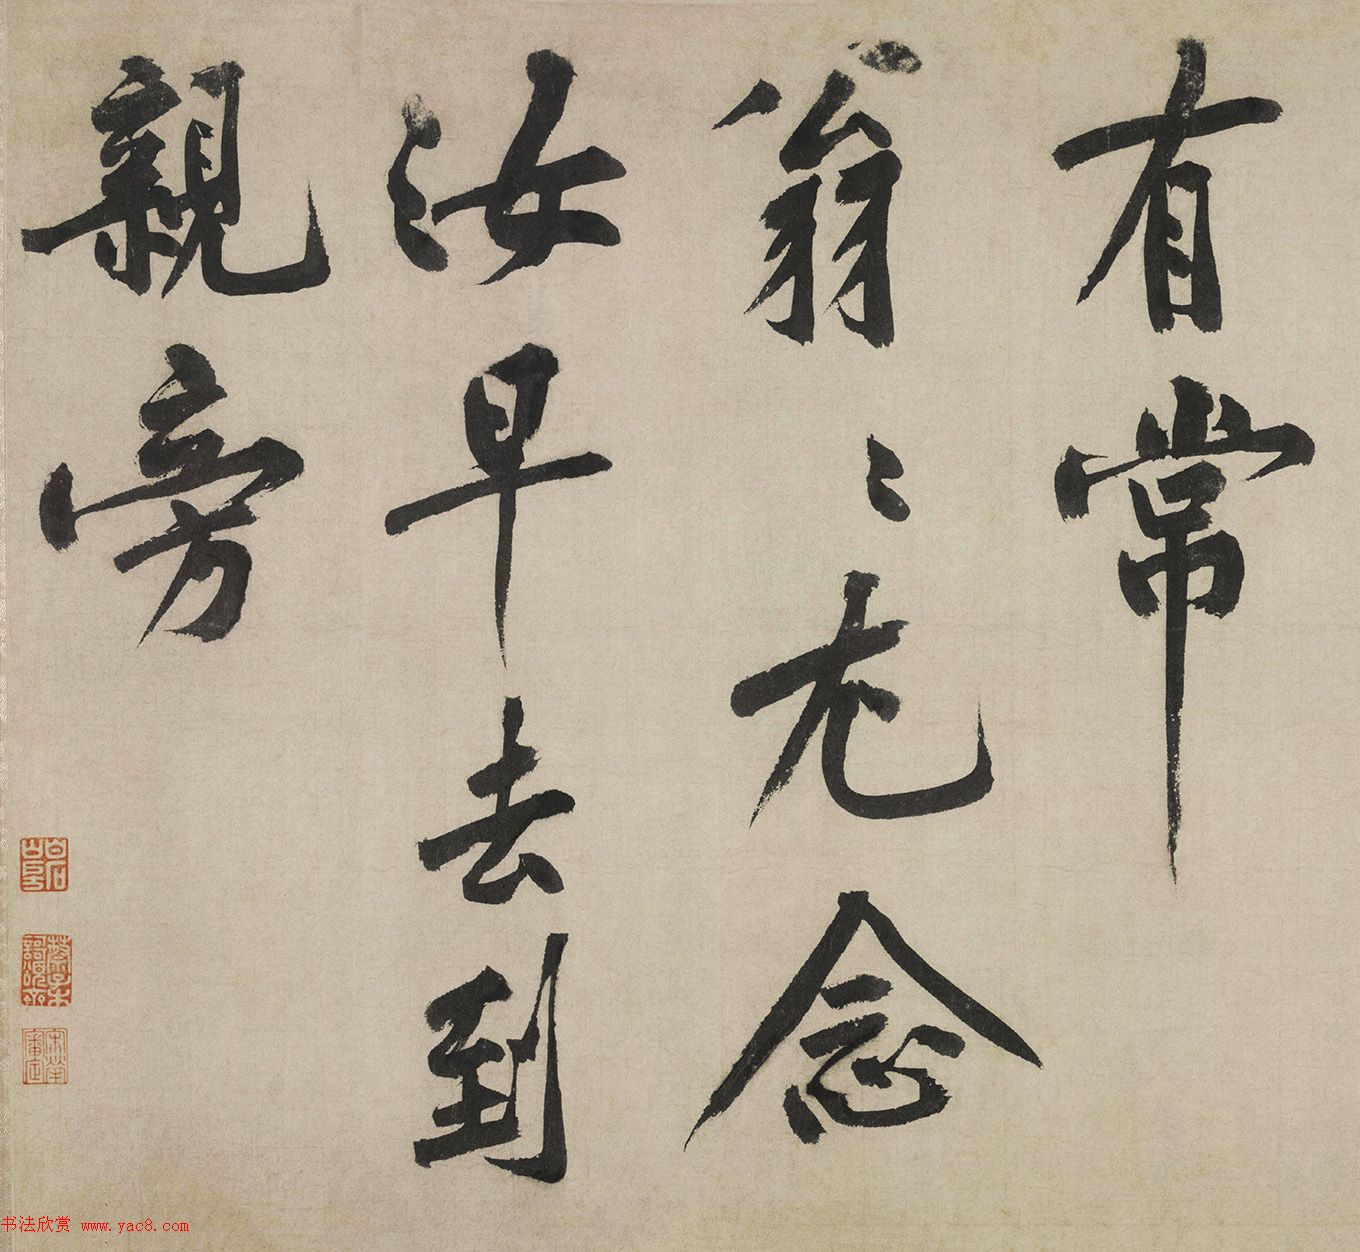 有常
翁〻尤念
汝早去到
親旁
书法欣赏 www.yac8.com